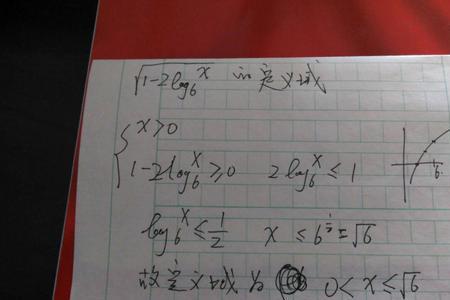 √(1-2log₆x) 的定义域
x>0
1-2log₆x≥0 2log₆x≤1
log₆x≤1/2 x≤6^(1/2)=√6
故定义域为 0<x≤√6
6